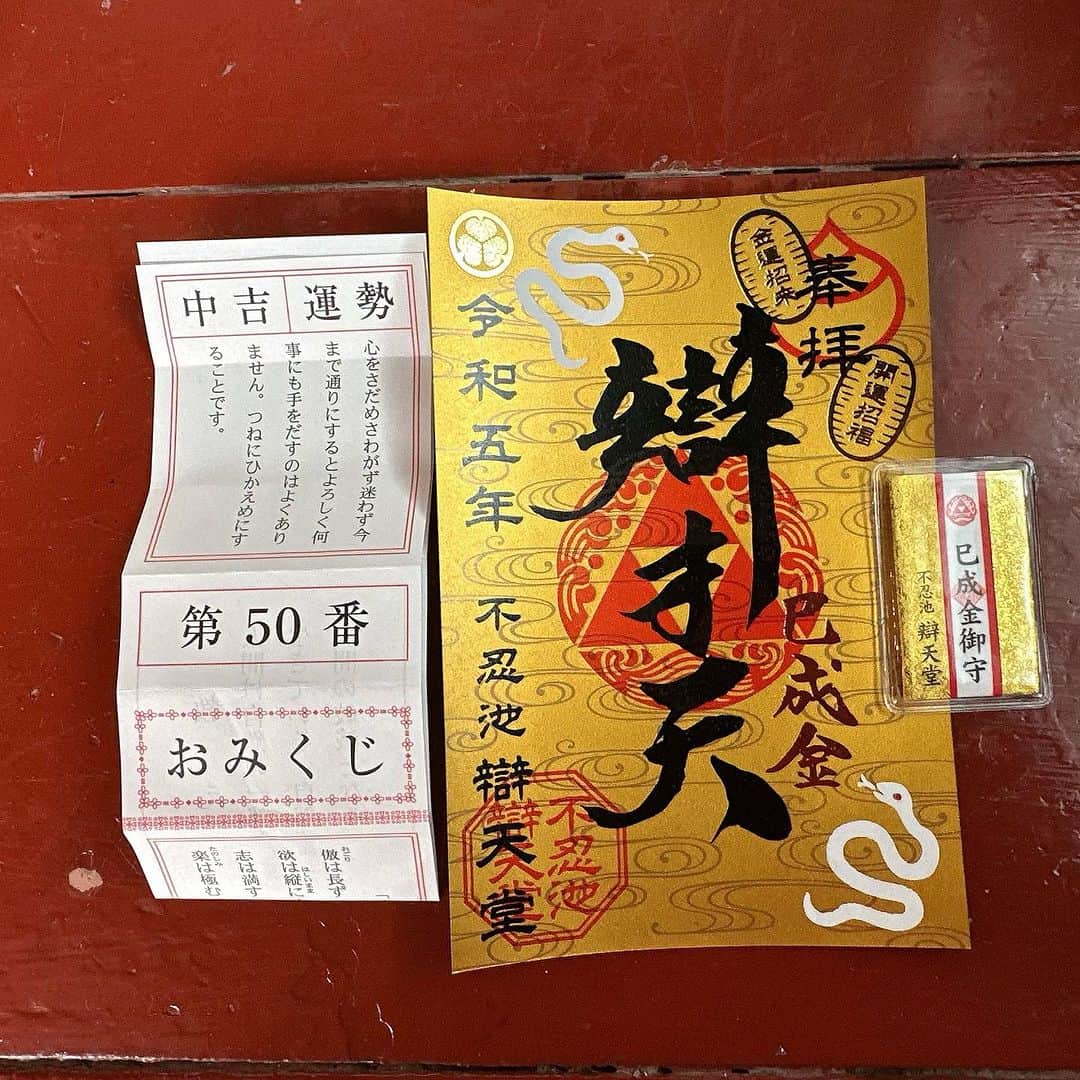 中吉 運勢
心をさだめさわがず迷わず今
まで通りにするとよろしく何
事にも手をだすのはよくあり
ません。つねにひかえめにす
ることです。
第50番
おみくじ
傲は長ず
おごり
欲は縦に
ほしいまま
志は満す
楽は極む
たのしみ
奉拝
金運招来
開運招福
辯才天
巳成金
令和五年 不忍池 辯天堂
不忍池
辯天堂
巳成金御守
不忍池 辯天堂